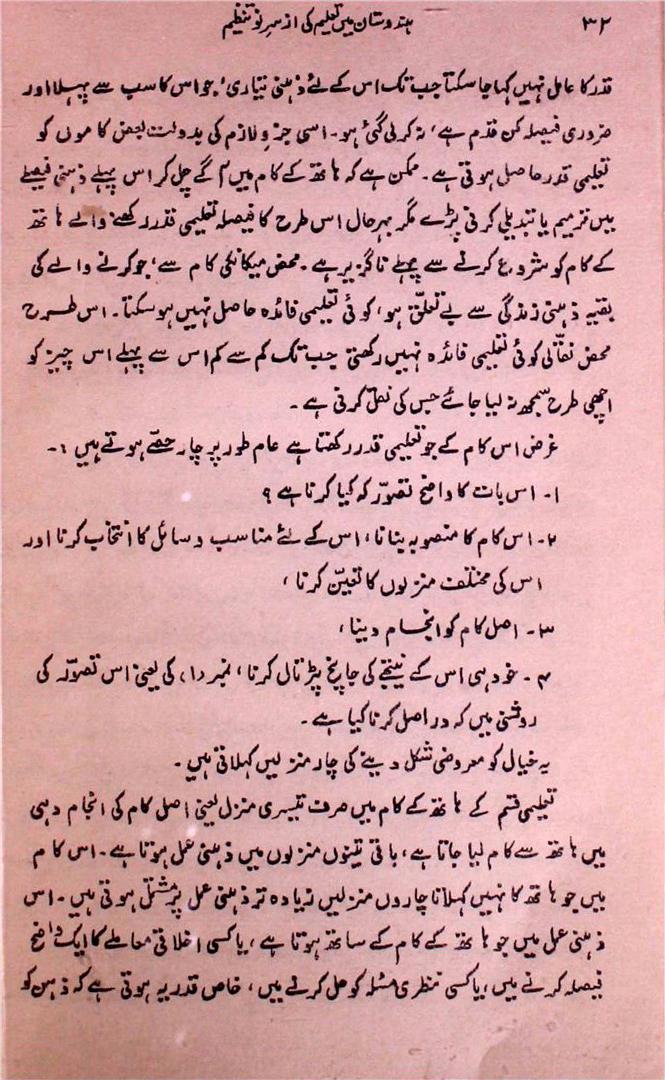 ۳۲ ہندوستان میں تعلیم کی از سرِ نو تنظیم
قدر کا عامل نہیں کہا جا سکتا جب تک اس کے لئے ذہنی تیاری، جو اس کا سب سے پہلا اور
ضروری فیصلہ کن قدم ہے، نہ کر لی گئی ہو۔ اسی جزوِ لازم کی بدولت بعض کاموں کو
تعلیمی قدر حاصل ہوتی ہے۔ ممکن ہے کہ ہاتھ کے کام میں آگے چل کر اس پہلے ذہنی فیصلے
میں ترمیم یا تبدیلی کرنی پڑے مگر بہرحال اس طرح کا فیصلہ تعلیمی قدر رکھنے والے ہاتھ
کے کام کو شروع کرنے سے پہلے ناگزیر ہے۔ محض میکانکی کام سے، جو کرنے والے کی
بقیہ ذہنی زندگی سے بے تعلق ہو، کوئی تعلیمی فائدہ حاصل نہیں ہو سکتا۔ اس طرح
محض نقّالی کوئی تعلیمی فائدہ نہیں رکھتی جب تک کم سے کم اس سے پہلے اس چیز کو
اچھی طرح سمجھ نہ لیا جائے جس کی نقل کرنی ہے۔
غرض اس کام کے جو تعلیمی قدر رکھتا ہے عام طور پر چار حصّے ہوتے ہیں :۔
۱۔ اس بات کا واضح تصوّر کہ کیا کرنا ہے ؟
۲۔ اس کام کا منصوبہ بنانا، اس کے لئے مناسب وسائل کا انتخاب کرنا اور
اس کی مختلف منزلوں کا تعیّن کرنا ،
۳۔ اصل کام کو انجام دینا،
۴۔ خود ہی اس کے نتیجے کی جانچ پڑتال کرنا، نمبر (۱) کی یعنی اس تصوّر کی
روشنی میں کہ دراصل کرنا کیا ہے۔
یہ خیال کو معروضی شکل دینے کی چار منزلیں کہلاتی ہیں۔
تعلیمی قسم کے ہاتھ کے کام میں صرف تیسری منزل یعنی اصل کام کی انجام دہی
میں ہاتھ سے کام لیا جاتا ہے، باقی تینوں منزلوں میں ذہنی عمل ہوتا ہے۔ اس کام
میں جو ہاتھ کا نہیں کہلاتا چاروں منزلیں زیادہ تر ذہنی عمل پر مشتمل ہوتی ہیں۔ اس
ذہنی عمل میں جو ہاتھ کے کام کے ساتھ ہوتا ہے، یا کسی اخلاقی معاملے کا ایک واضح
فیصلہ کرنے میں، یا کسی نظری مسئلہ کو حل کرنے میں، خاص قدر یہ ہوتی ہے کہ ذہن کو